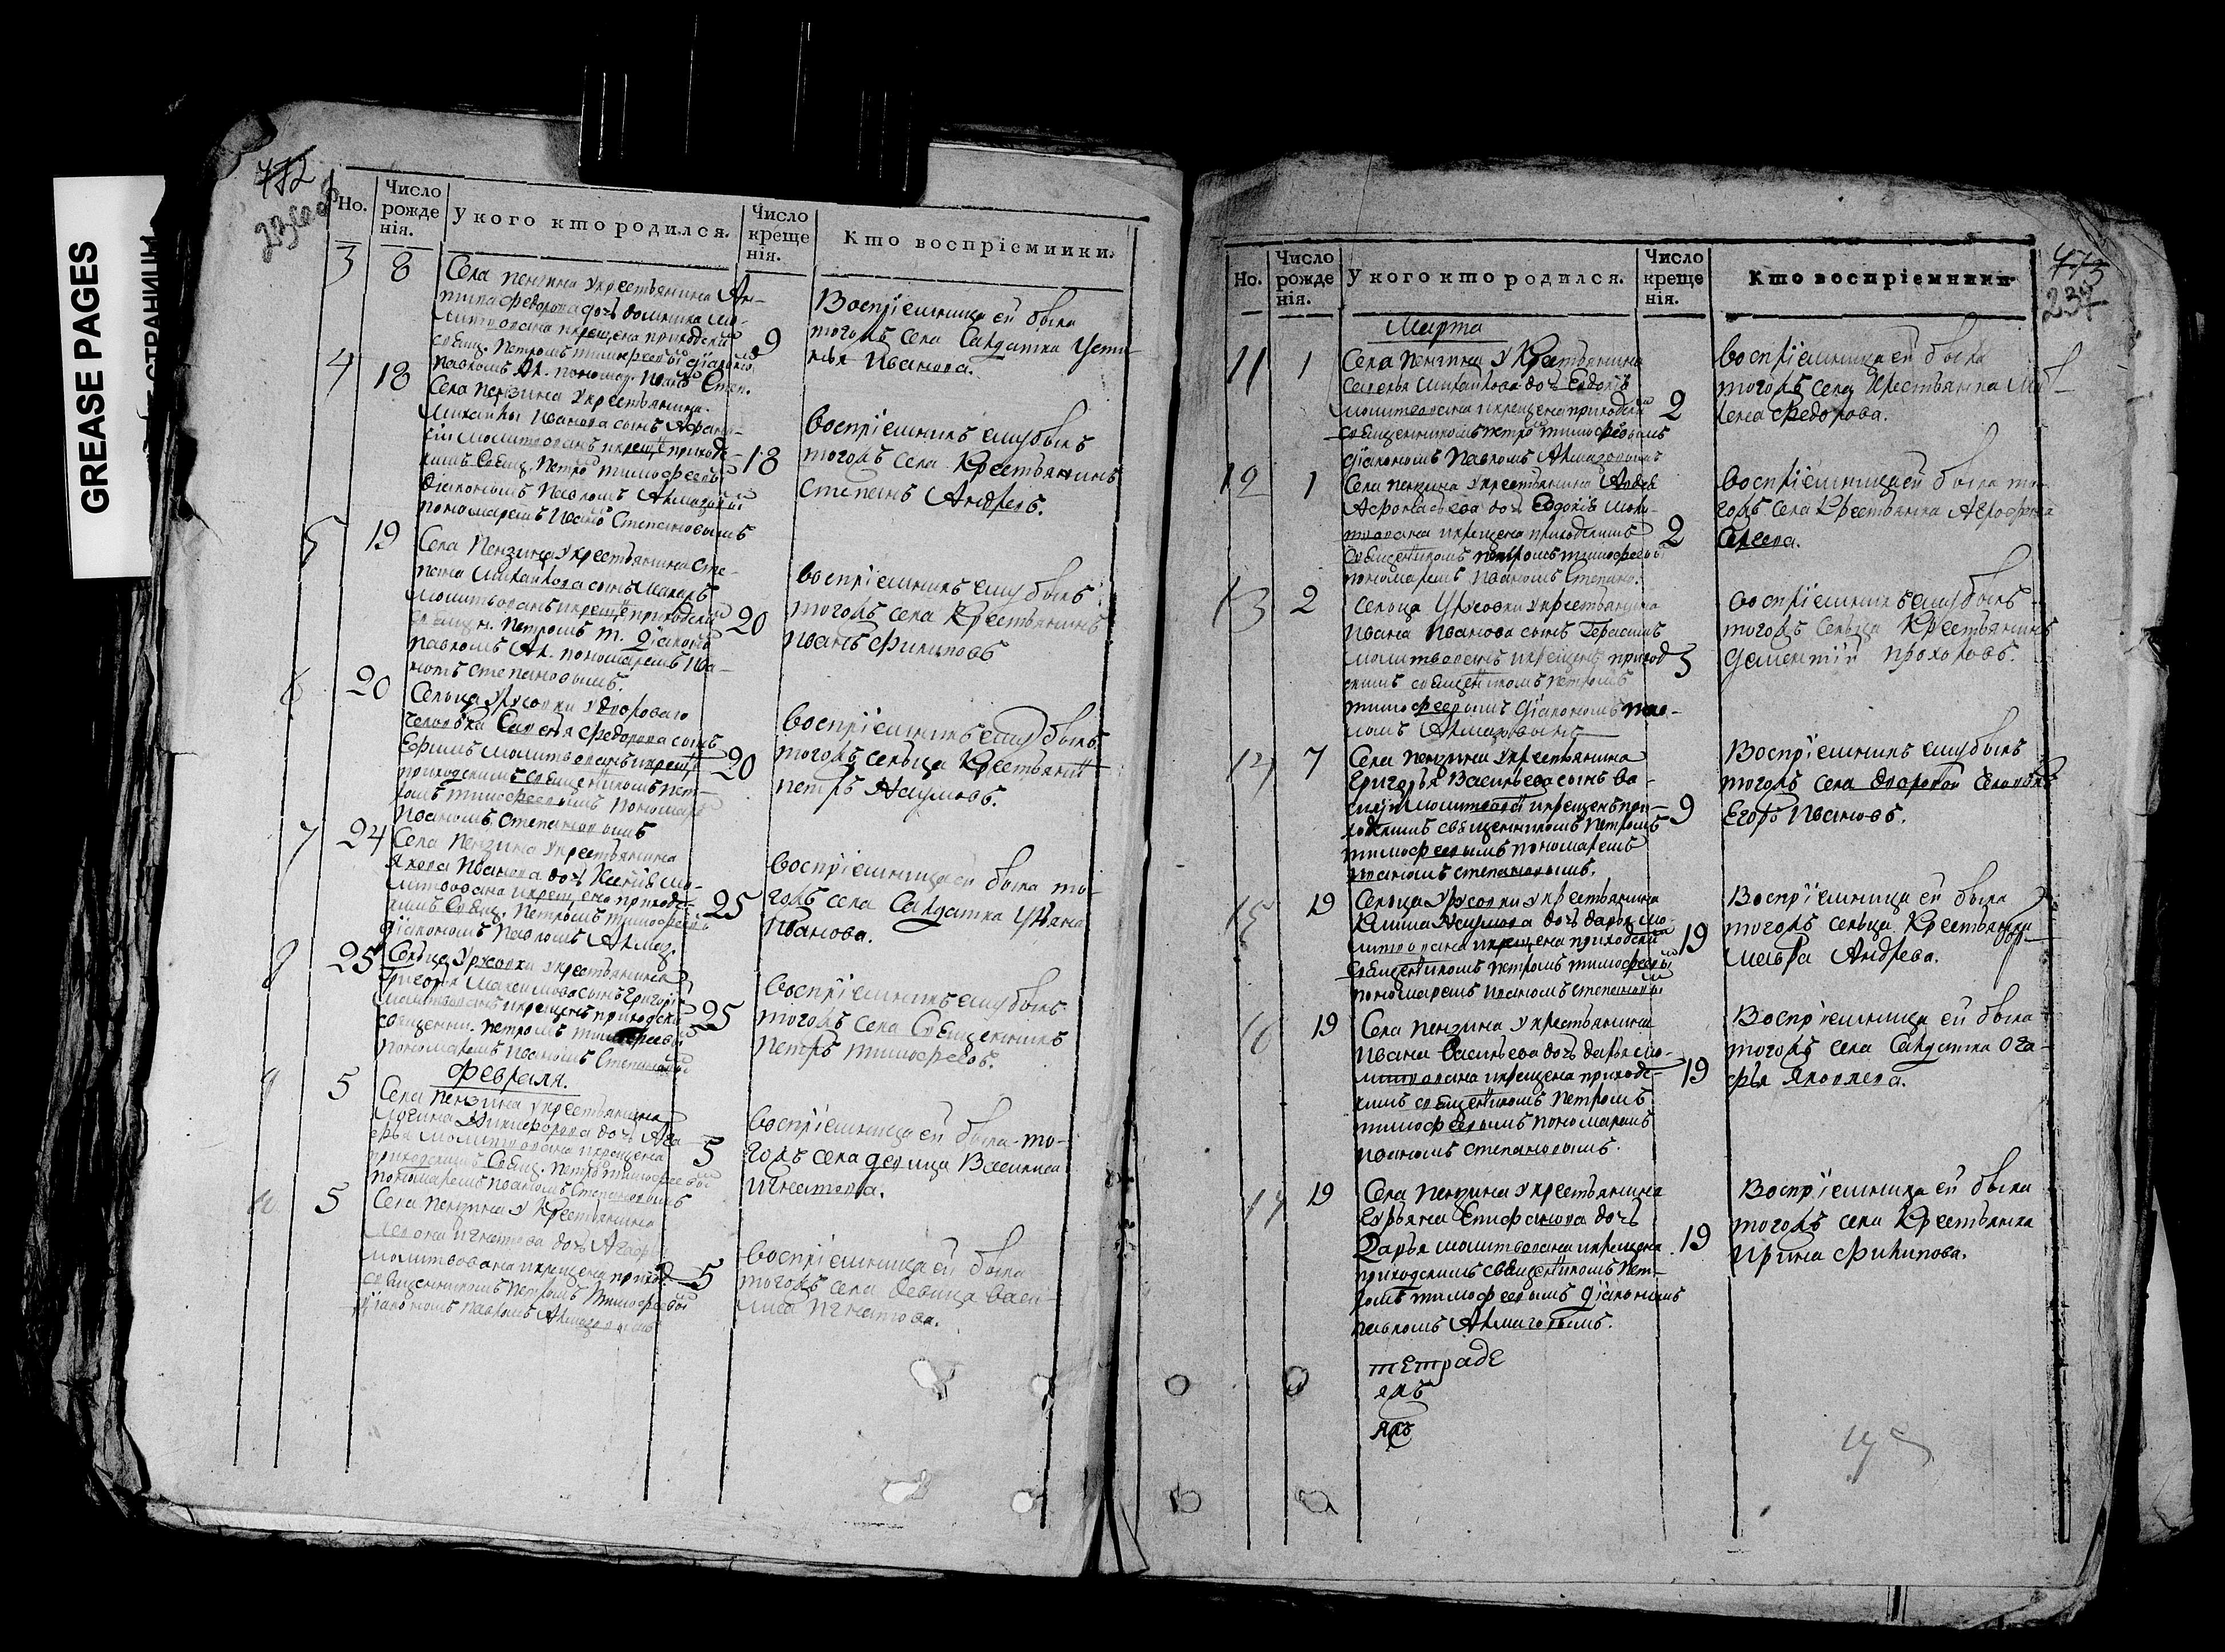 GREASE PAGES
СТРАНИЦЫ
Но.
Число рожде нія.
У кого кто родился.
Число креще нія.
Кто воспріемники.
3 8
Села пензина укрестьянина Ан-
типа федорова дочь домника мо-
литвована икрещена приходским
свящ. петромъ тимофеевы діакономъ
павломъ Ал. пономар. Иван Степ.
9
Воспріемница ей была
тогожъ села Салдатка Усти-
нья Иванова.
4 18
Села пензина укрестьянина
Михайлы Иванова сынъ Афана-
сій молитвованъ икрещенъ приходс-
кимъ Свящ. Петро тимофеевы
діакономъ Павломъ Алмазовы
пономаремъ Ивано Степановымъ
18
Воспріемникъ ему былъ
тогожъ села Крестьянинъ
степанъ Андреевъ.
5 19
Села Пензина укрестьянина Сте-
пана Михайлова сынъ Макаръ
молитвованъ икрещенъ приходски
свящн. Петромъ Т. діакономъ
павломъ Ал. пономаремъ Ива-
номъ степановымъ.
20
воспріемникъ ему былъ
тогожъ села Крестьянинъ
Иванъ Филиповъ
6 20
Сельца Уржовки удвороваго
человѣка Савелья федорова сынъ
Ефимъ молитвованъ икрещ
приходскимъ священикомъ пет-
ромъ тимофеевымъ пономаре
Иваномъ степановымъ
20
Воспріемникъ ему былъ
тогожъ сельца Крестьянин
петръ
7 24
Села Пензина укрестьянина
Якова Иванова дочь Ксенія мо-
литвована икрещена приходс-
кимъ Свящ. Петромъ тимофеев
діакономъ Павломъ Алмаз.
25
Воспріемница ей была то-
гожъ села Салдатка Ульяна
Иванова.
8 25
Сельца Уржовки укрестьянина
Григорья Максимова сынъ Григорій
молитвованъ икрещенъ приходски
священни. петромъ тимофеевы
пономаремъ Иваномъ Степановы
25
Воспріемникъ ему былъ
тогожъ села Священникъ
Петръ тимофеевъ.
февраля.
9 5
Села пензина укрестьянина
Логина Никифорова дочь Ага-
фья молитвована икрещена
приходскимъ Свящ. Петро тимофеевы
пономаремъ Иваномъ Степановымъ
5
воспріемница ей была то-
гожъ села девица Василиса
Игнатова.
10 5
Села Пензина у Крестьянина
игнатова дочь Агафья
молитвована икрещена приход
священникомъ Петромъ Тимофеевы
діакономъ павломъ Алмазовымъ
5
Воспріемница ей была
тогожъ села девица Васи-
лиса Игнатова.
Но.
Число рожде нія.
У кого кто родился.
Число креще нія.
Кто воспріемники
237
Марта
11 1
Села пензина у Крестьянина
Савелья Михайлова дочь Евдокія
молитвована икрещена приходски
священникомъ петро тимофеевымъ
діакономъ Павломъ Алмазовымъ
2
воспріемница ей была
тогожъ села Крестьянка
федорова.
12 1
Села пензина укрестьянина Авдея
Афонасьева дочь Евдокія моли-
твована икрещена приходскимъ
священикомъ петромъ тимофеевы
пономаремъ Иваномъ Степано.
2
воспріемница ей была то-
гожъ села Крестьянка Агрофена
Сергеева.
13 2
сельца Уржовки укрестьянина
Ивана Иванова сынъ Герасимъ
молитвованъ икрещенъ приход
скимъ священикомъ Петромъ
тимофеевымъ діакономъ пав-
ломъ Алмазовымъ
3
воспріемникъ ему былъ
тогожъ сельца Крестьянинъ
дементій прохоровъ.
14 7
Села пензина укрестьянина
Григорья Васильева сынъ Ва-
силій молитвова икрещенъ при-
ходскимъ священникомъ петромъ
тимофеевымъ пономаремъ
Иваномъ степановымъ.
9
Воспріемникъ ему былъ
тогожъ села дворовой человѣкъ
Егоръ Ивановъ.
15 19
Сельца Уржовки укрестьянина
дочь дарья мо-
литвована икрещена приходски
священикомъ петромъ тимофеевы
пономаремъ Иваномъ степановы
19
Воспріемница ей была
тогожъ сельца Крестьянка
Андрева.
16 19
Села пензина укрестьянина
Ивана Васильева дочь дарья мо-
литвована икрещена приходс-
кимъ священикомъ петромъ
тимофеевымъ пономаремъ
Иваномъ степановымъ.
19
Воспріемница ей была
тогожъ села Салдатка Ога-
фья Яковлева.
17 19
Села пензина укрестьянина
Гурьяна Епифанова дочь
Дарья молитвована икрещена
приходскимъ священикомъ Пет-
ромъ тимофеевымъ діакономъ
павломъ Алмазовымъ.
19
Воспріемница ей была
тогожъ села Крестьянка
ирина Филипова.
тетраде
якъ
якъ